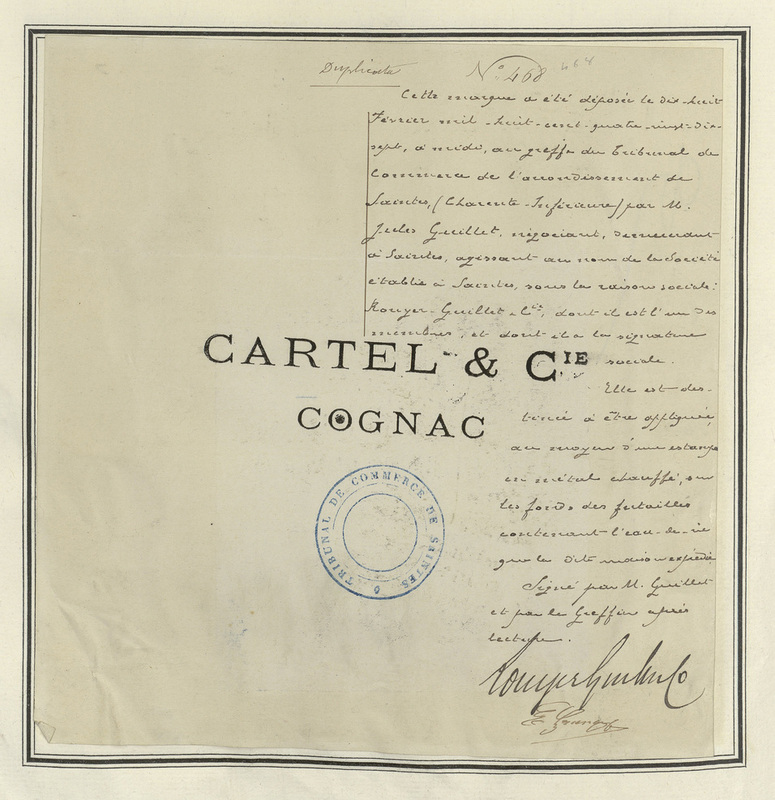 Duplicata
N° 468
468
Cette marque a été déposée le dix-huit
Février mil-huit-cent-quatre-vingt-dix-
sept, à midi, au greffe du Tribunal de
Commerce de l'arrondissement de
Saintes, (Charente-Inférieure) par M.
Jules Guillet, négociant, demeurant
à Saintes, agissant au nom de la Société
établie à Saintes, sous la raison sociale:
Rouyer-Guillet & Cie, dont il est l'un des
membres, et dont il a la signature
sociale.
CARTEL & CIE
COGNAC
Elle est des-
tinée à être appliquée,
au moyen d'une estampe
en métal chauffé, sur
les fonds des futailles
contenant l'eau-de-vie
que la dite maison expédie
Signé par M. Guillet
et par le Greffier après
lecture.
Rouyer Guillet & Co
TRIBUNAL DE COMMERCE DE SAINTES